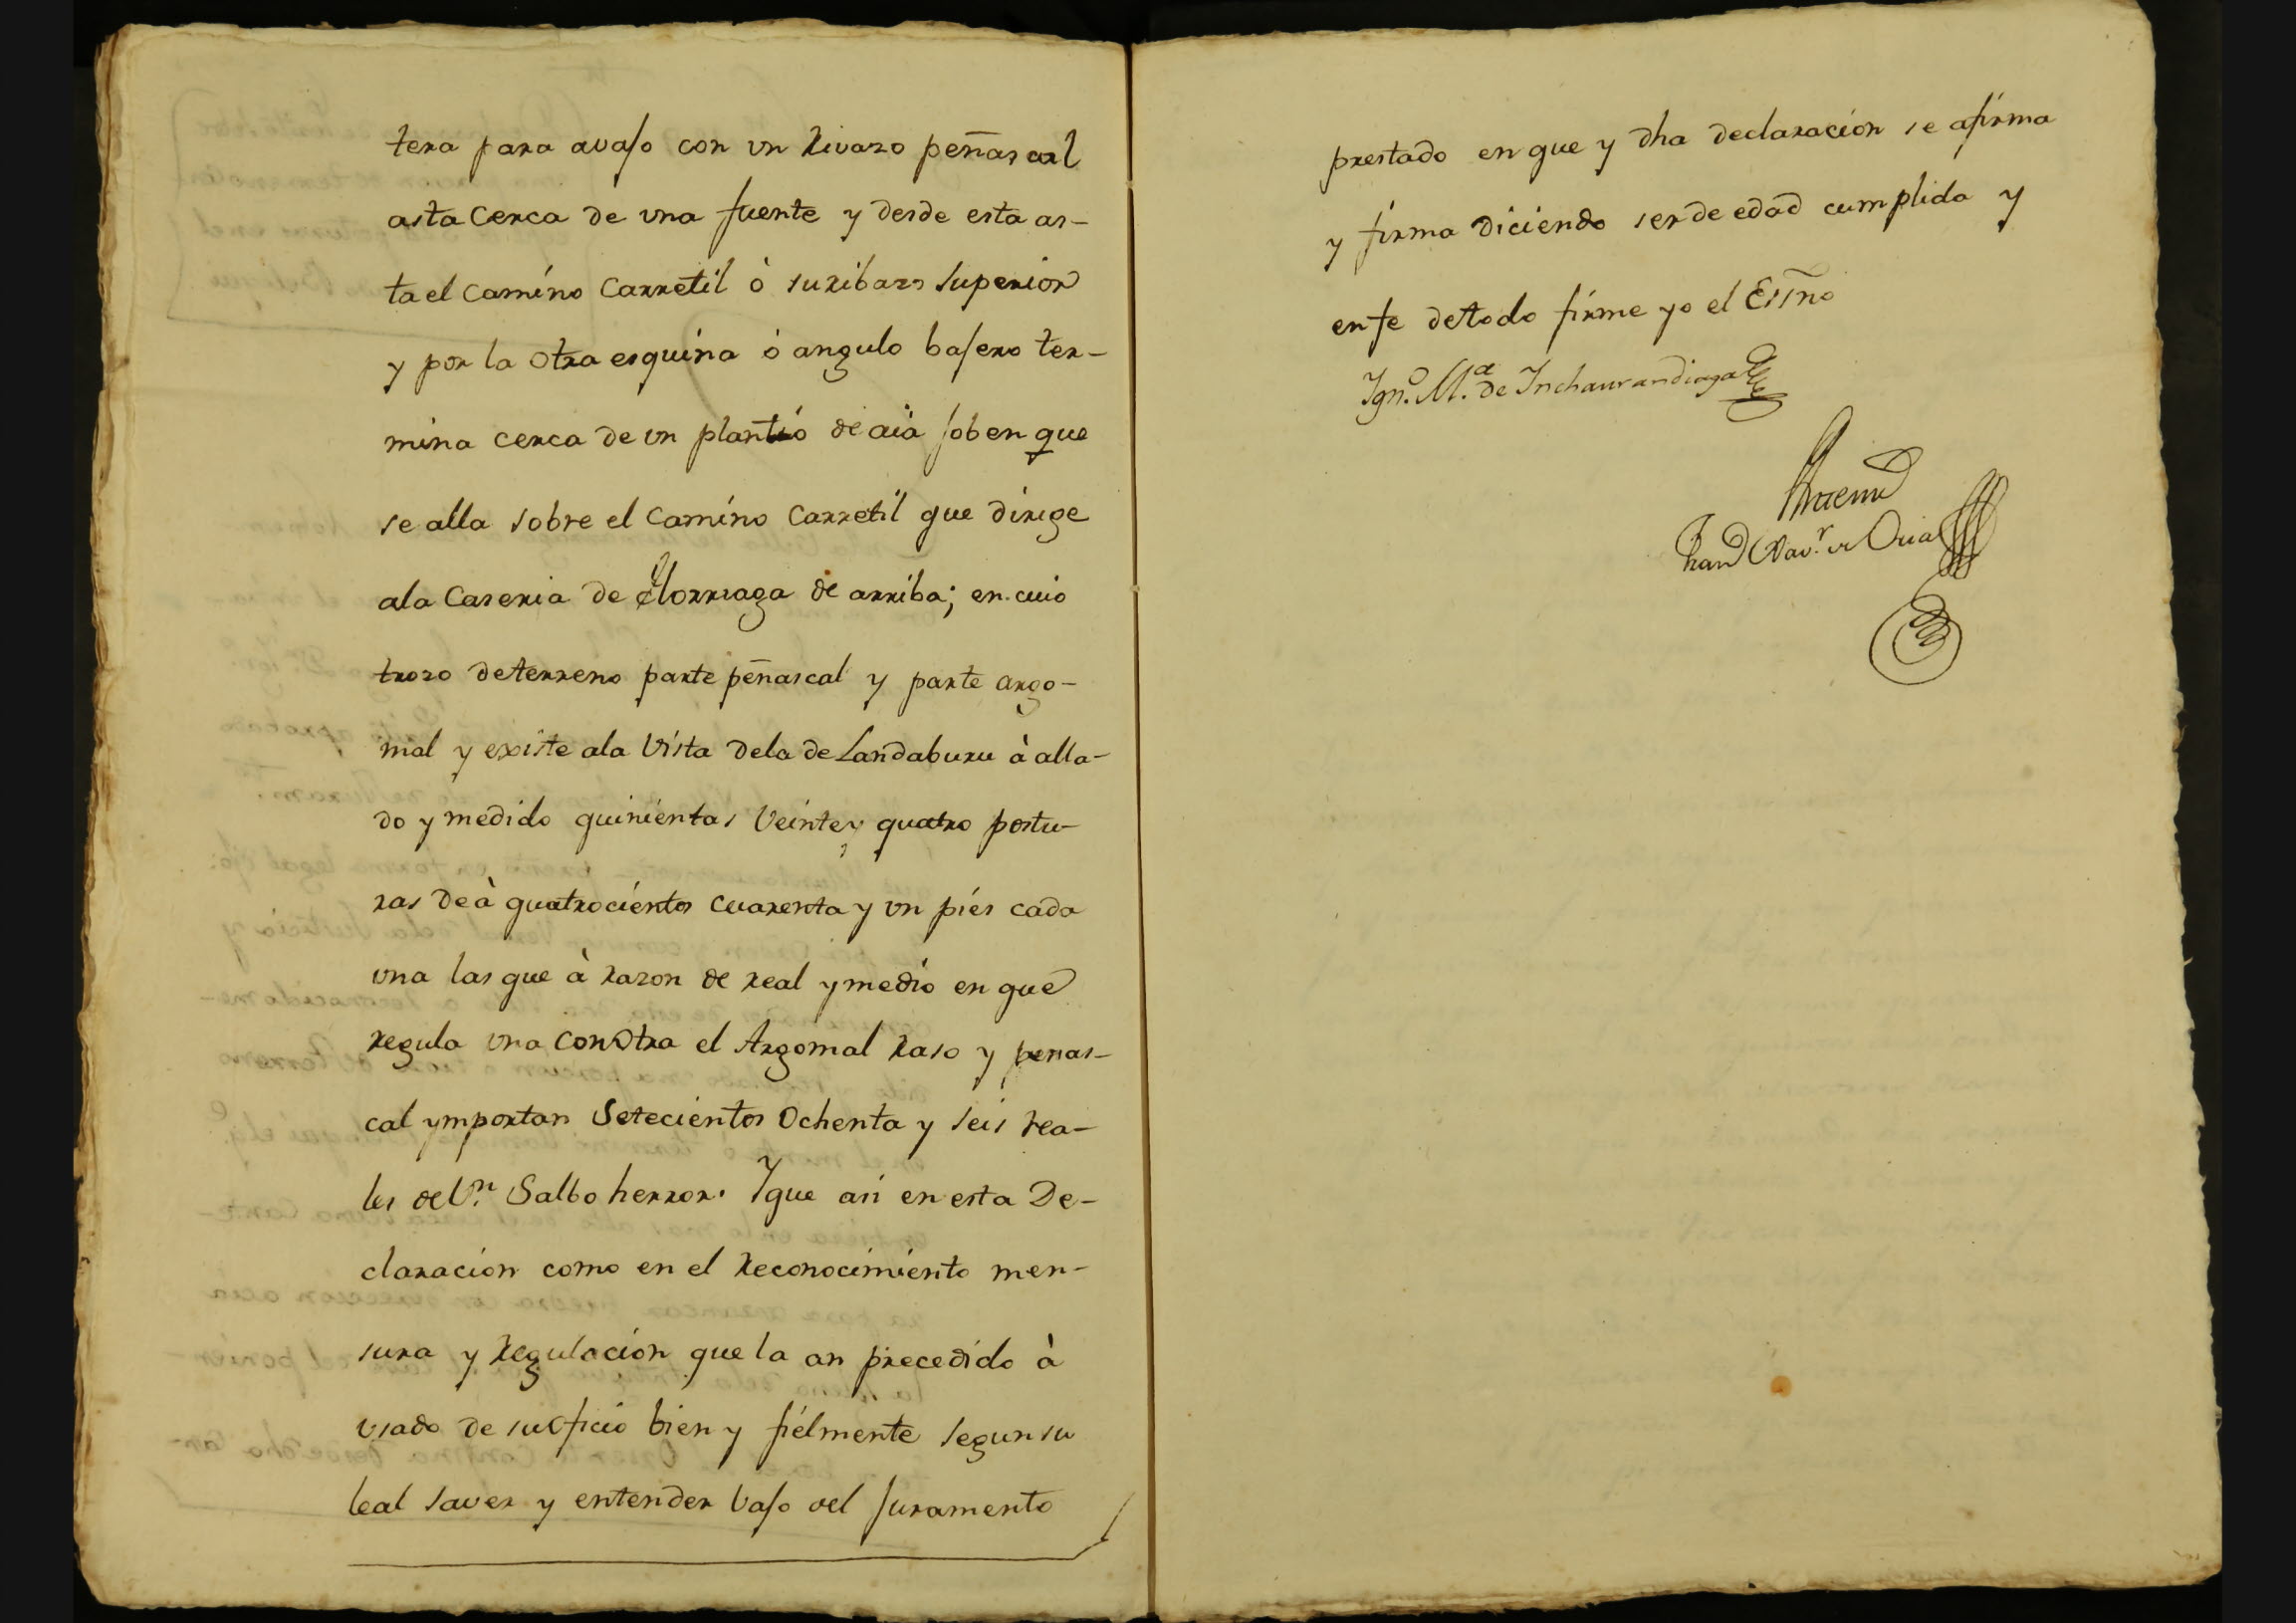 tera para avajo con vn Rivazo peñascal
asta Cerca de una fuente y desde esta as-
ta el Camino Carretil ò suribazo Superior
y por la otra esquina ó angulo bajero ter-
mina cerca de vn plantió de aià joben que
se alla sobre el Camino Carretil que dirige
ala Caseria de Elorriaga de arriba; en cuio
trozo de terreno parte peñascal y parte argo-
mal y existe ala Vista dela de Landaburu à alla-
do y medido quinientas Veinte y quatro postu-
ras de à quatrocientos cuarenta y vn pies cada
vna las que à razon de real y medio en que
regula vna con Otra el Argomal Raso y penas-
cal ymportan Setecientos Ochenta y seis rea-
les de Vn. Salbo herror. Y que asi en esta De-
claracion como en el Reconocimiento men-
sura y Regulacion que la an precedido à
vsado de su oficio bien y fielmente segun su
leal saver y entender bajo del Juramento
prestado en que y dha declaracion se afirma
y firma diciendo ser de edad cumplida y
en fe de todo firme yo el Essno
Ign.o M.a de Inchaurandiaga
Antemi
Xav.r de Oria